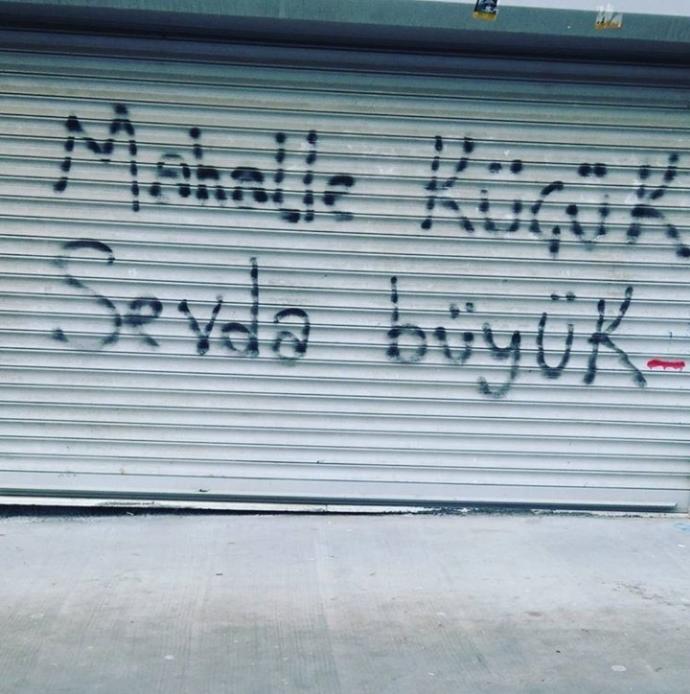 Mahalle Küçük
Sevda büyük